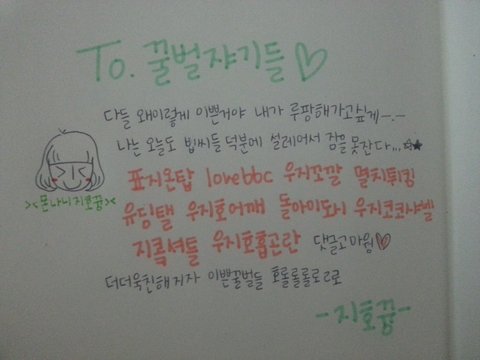 To. 꿀벌쟈기들♡
다들 왜이렇게 이쁜거야 내가 루팡해가고싶게-.-
나는 오늘도 빕씨들 덕분에 설레어서 잠을 못잔다...★★
표지온탑 lovebbc 우지꼬깔 멸치튀킹
유딩탤 우지호어깨 돌아이도시 우지코코샤벨
지콕셔틀 우지호흡곤란 댓글고마웡♡
><몬나니지호꿉><
더더욱친해지자 이쁜꿀벌들 호롤롤롤로로로
-지호꿉-